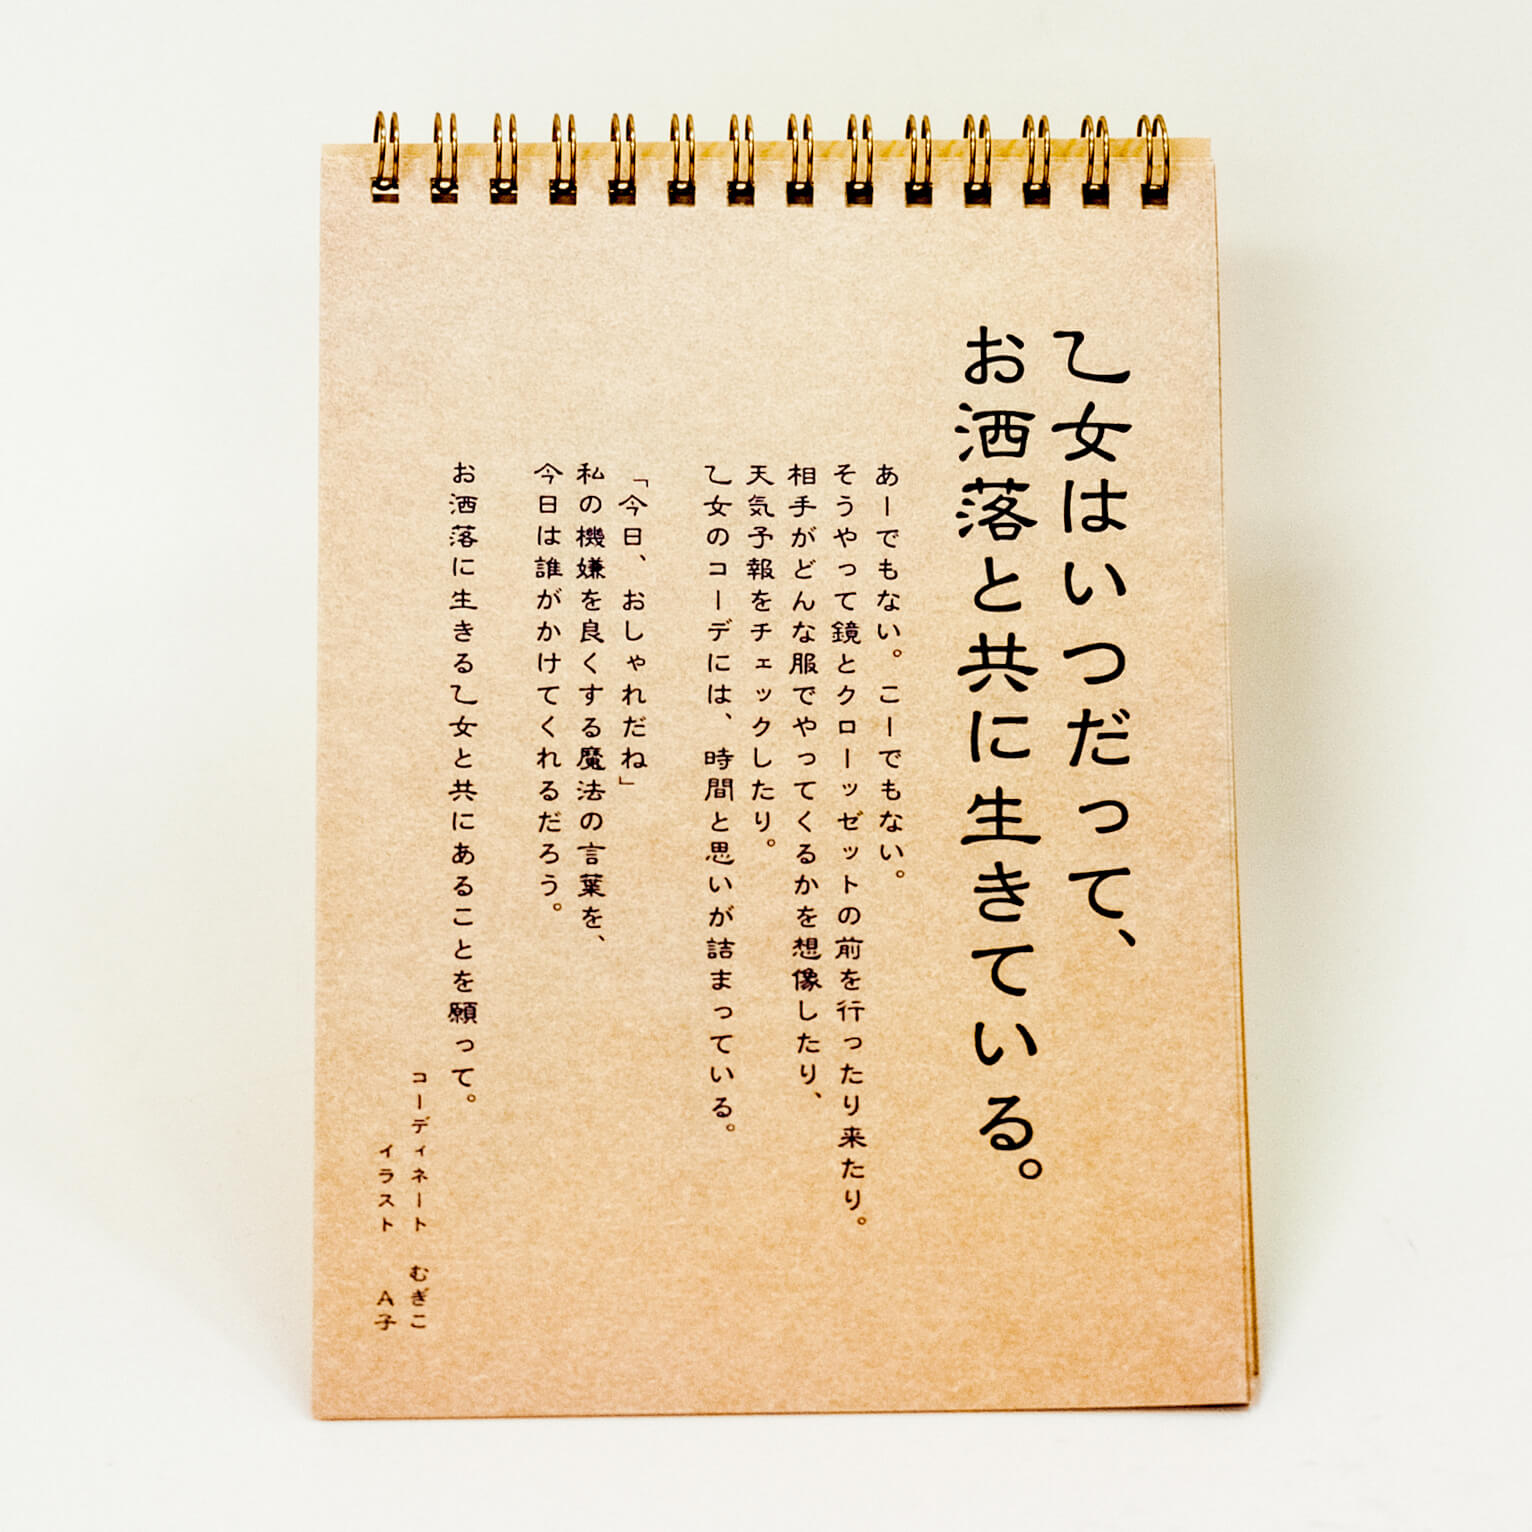 乙女はいつだって、
お洒落と共に生きている。
あーでもない。こーでもない。
そうやって鏡とクローッゼットの前を行ったり来たり。
相手がどんな服でやってくるかを想像したり、
天気予報をチェックしたり。
乙女のコーデには、時間と思いが詰まっている。
「今日、おしゃれだね」
私の機嫌を良くする魔法の言葉を、
今日は誰がかけてくれるだろう。
お洒落に生きる乙女と共にあることを願って。
コーディネート　むぎこ
イラスト　A子